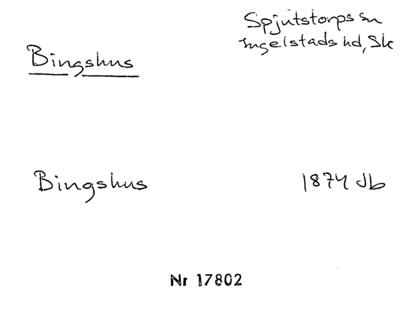 Spjutstorps sn
Ingelstads hd, Sk
Bingshus
Bingshus 1874 Jb
Nr 17802